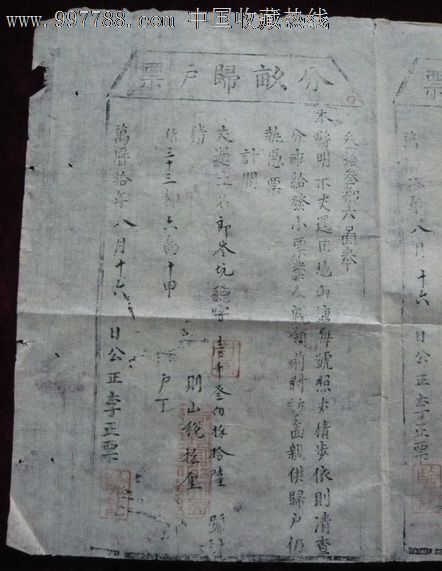 www.997788.com 中国收藏热线
分畝歸戶票
叁拾叁都六啚奉
本縣明示丈過田地山塘每號照丈積步依則清查
分畝給發小票業人親領前付該啚親供歸戶仍
執憑票
計開
丈過土名郎岺坑 字壹千叁伯 拾陸 號
積 則山稅 厘
係三十三都六啚十甲 戶丁
萬曆拾年八月十六日公正李正票
年八月十六日公正李正票